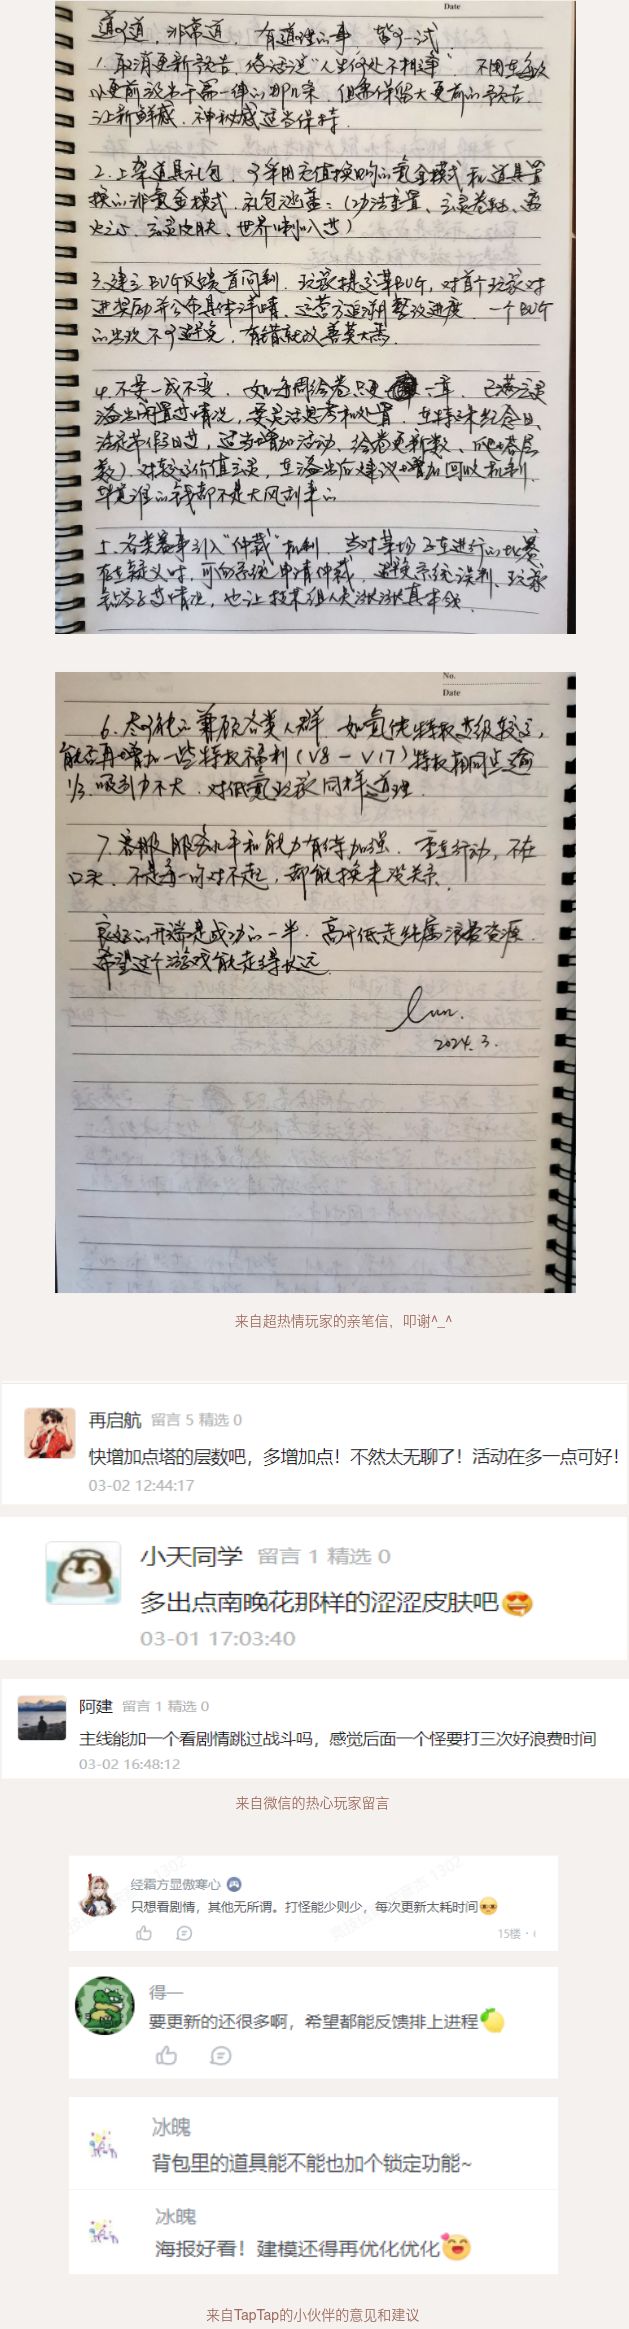 Date
道可道，非常道，有道理的事，皆可一试。
1.取消更新预告，俗话说"人生何处不相逢"，不用在每次
小更前说若干需一律的那几条，但需保留大更前的预告
让新鲜感、神秘感适当保持．
2.上架道具礼包，可采用充值换购的氪金模式和道具置
换的非氪金模式．礼包涵盖：(功法重置、玄灵卷轴、
火之心、玄灵皮肤、世界喇叭等)
3.建立BUG反馈首问制．玩家提交某BUG，对首个玩家对
进奖励并公布具体详情、运营方追溯整改进度．一个BUG
的出现不可避免，有错就改善莫大焉．
4.不要一成不变．如每周绘卷只更一章、已满玄灵
溢出闲置等情况，要灵活思考和处置．在特殊纪念日、
法定节假日等，适当增加活动、绘卷更新数、爬塔层
数)．对较高价值玄灵，在溢出后建议增加回收机制．
毕竟谁的钱都不是大风刮来的
5.各类赛事引入"仲裁"机制．当对某场正在进行的比赛
存在疑义时，可向系统申请仲裁，避免系统误判、玩家
钻空子等情况，也让技术组人员涨涨真本领．
No.
Date
6.尽可能的兼顾各类人群．如氪佬特权等级较高，
能否再增加一些特权福利(V8－V17)特权相同点逾
1/3．吸引力不大．对低氪玩家同样道理．
7.客服服务水平和能力有待加强．重在行动，不在
口头．不是每一句对不起，都能换来没关系．
良好的开端是成功的一半．高开低走纯属浪费资源．
希望这个游戏能走得长远．
lun.
2024.3.
来自超热情玩家的亲笔信，叩谢^_^
再启航 留言 5 精选 0
快增加点塔的层数吧，多增加点！不然太无聊了！活动在多一点可好！
03-02 12:44:17
小天同学 留言 1 精选 0
多出点南晚花那样的涩涩皮肤吧
03-01 17:03:40
阿建 留言 1 精选 0
主线能加一个看剧情跳过战斗吗，感觉后面一个怪要打三次好浪费时间
03-02 16:48:12
来自微信的热心玩家留言
经霜方显傲寒心
只想看剧情，其他无所谓。打怪能少则少，每次更新太耗时间
15楼 ·
得一
要更新的还很多啊，希望都能反馈排上进程
冰魄
背包里的道具能不能也加个锁定功能~
冰魄
海报好看！建模还得再优化优化
来自TapTap的小伙伴的意见和建议